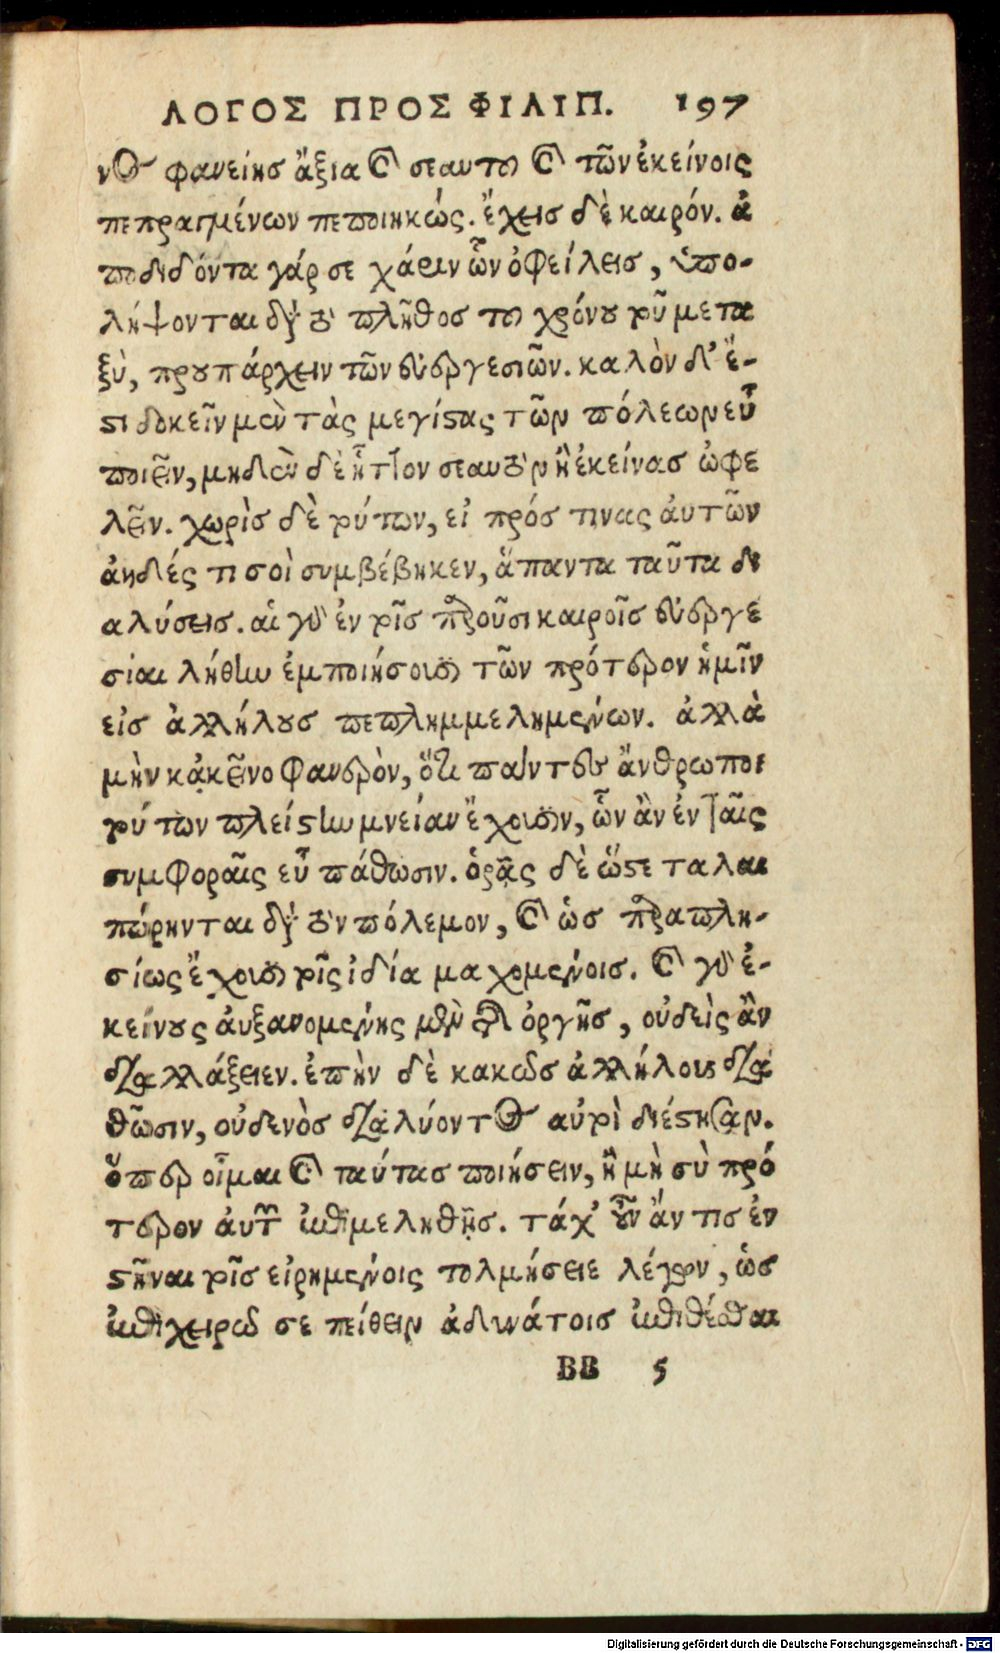 ΛΟΓΟΣ ΠΡΟΣ ΦΙΛΙΠ. 197
νος φανείης ἄξια καὶ σεαυτοῦ καὶ τῶν ἐκείνοις
πεπραγμένων πεποιηκώς. ἔχεις δὲ καιρόν. ἀ
ποδιδόντα γάρ σε χάριν ὧν ὀφείλεις, ὑπο-
λήψονται διὰ τὸ πλῆθος τοῦ χρόνου τοῦ μετα
ξὺ, προυπάρχειν τῶν εὐεργεσιῶν. καλὸν δ' ἔ-
στι δοκεῖν μὲν τὰς μεγίστας τῶν πόλεων εὖ
ποιεῖν, μηδὲν δὲ ἧττον σεαυτὸν ἢ ἐκείνας ὠφε
λεῖν. χωρὶς δὲ τούτων, εἰ πρός τινας αὐτῶν
ἀηδές τι σοὶ συμβέβηκεν, ἅπαντα ταῦτα δι
αλύσεις. αἱ γὰρ ἐν τοῖς παροῦσι καιροῖς εὐεργε
σίαι λήθην ἐμποιήσουσι τῶν πρότερον ἡμῖν
εἰς ἀλλήλους πεπλημμελημένων. ἀλλὰ
μὴν κἀκεῖνο φανερὸν, ὅτι πάντες ἄνθρωποι
τούτων πλείστην μνείαν ἔχουσιν, ὧν ἂν ἐν ταῖς
συμφοραῖς εὖ πάθωσιν. ὁρᾷς δὲ ὥστε ταλαι
πώρηνται διὰ τὸν πόλεμον, καὶ ὡς παραπλη-
σίως ἔχουσι τοῖς ἰδίᾳ μαχομένοις. καὶ γὰρ ἐ-
κείνους αὐξανομένης μὲν τῆς ὀργῆς, οὐδεὶς ἂν
διαλλάξειεν. ἐπὴν δὲ κακῶς ἀλλήλους δια
θῶσιν, οὐδενὸς διαλύοντος αὐτοὶ διέστησαν.
ὅπερ οἶμαι καὶ ταύτας ποιήσειν, ἢ μὴ σὺ πρό
τερον αὐτῶν ἐπιμεληθῇς. τάχ' οὖν ἄν τις ἐν
στῆναι τοῖς εἰρημένοις τολμήσειε λέγων, ὡς
ἐπιχειρῶ σε πείθειν ἀδυνάτοις ἐπιθέσθαι
BB 5
Digitalisierung gefördert durch die Deutsche Forschungsgemeinschaft - DFG